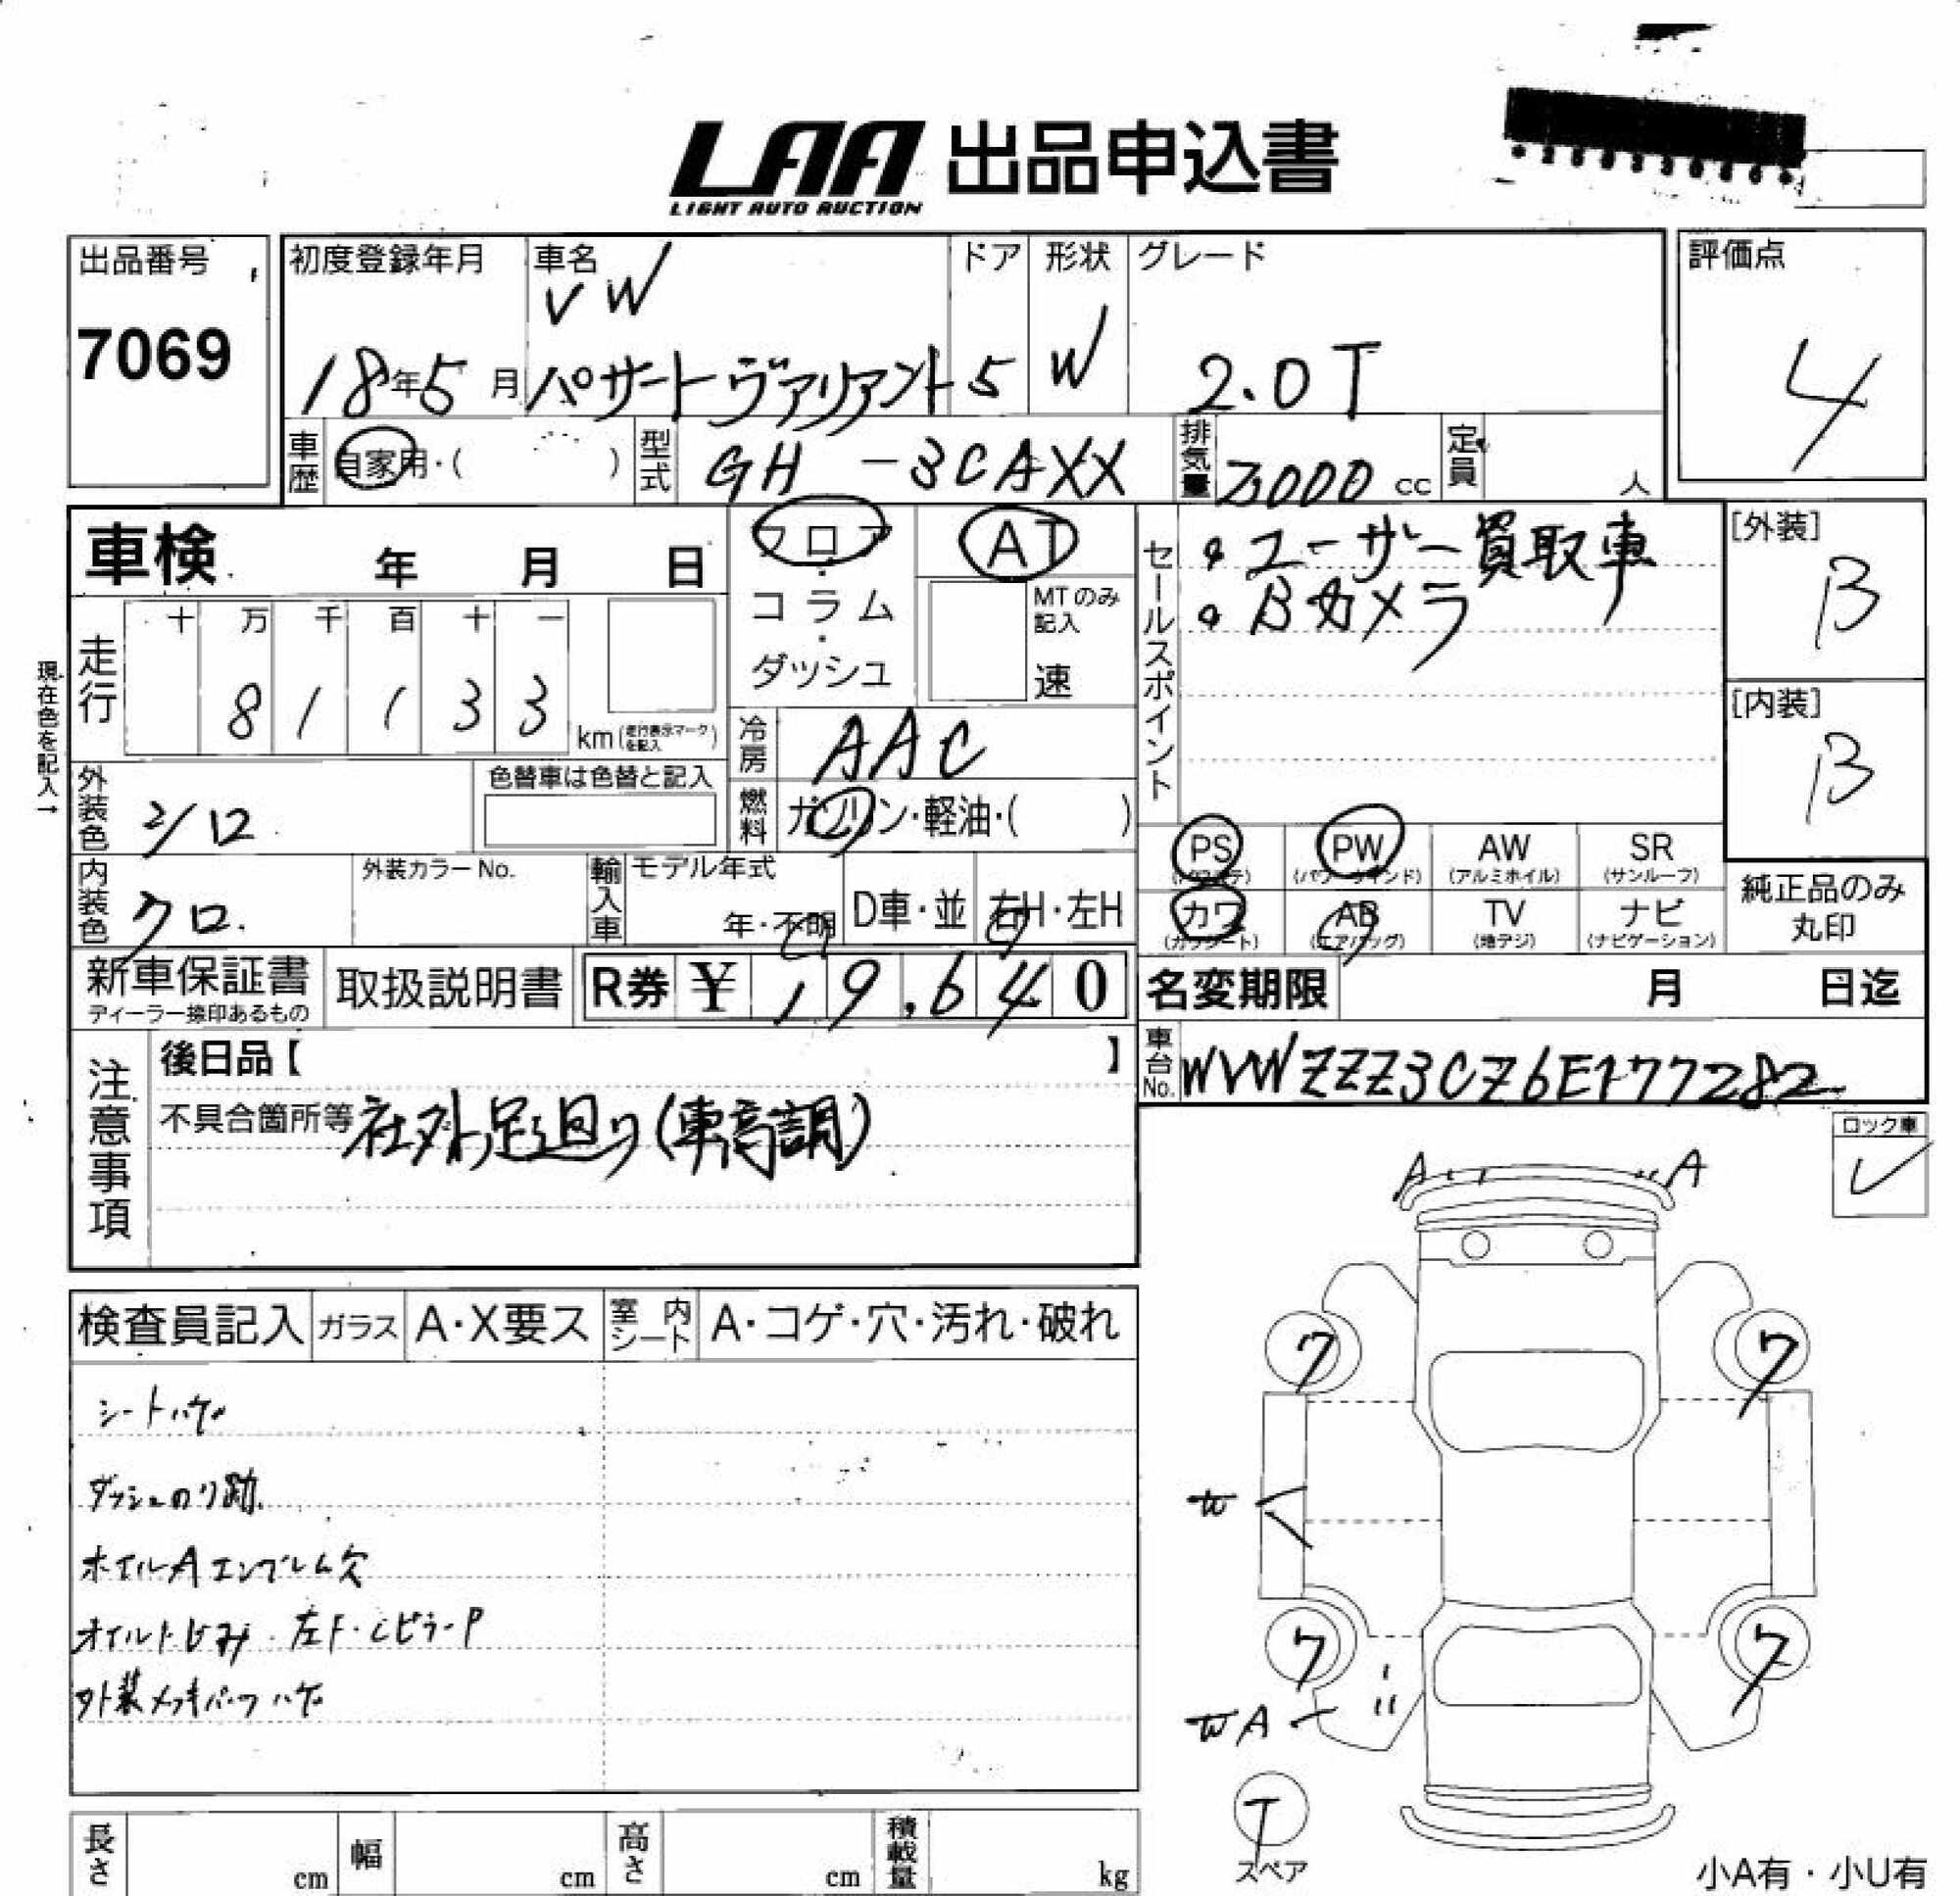 LAA 出品申込書
LIGHT AUTO AUCTION
出品番号
7069
初度登録年月
18年5月
車名
VW
パサートヴァリアント
ドア
5
形状
W
グレード
2.0T
評価点
4
車歴
自家用・( )
型式
GH-3CAXX
排気量
2000 cc
定員
人
車検 年 月 日
フロア
・
コラム
・
ダッシュ
AT
MTのみ
記入
速
セールスポイント
・ユーザー買取車
・Bカメラ
[外装]
B
[内装]
B
現在色を記入→
走行
十 万 千 百 十 一
8 1 1 3 3
km(走行表示マークを記入)
冷房
AAC
外装色
シロ
色替車は色替と記入
燃料
ガソリン・軽油・( )
PS PW AW SR
(パワステ) (パワーウインド) (アルミホイル) (サンルーフ)
カワ AB TV ナビ
(カワシート) (エアバッグ) (地デジ) (ナビゲーション)
純正品のみ
丸印
内装色
クロ.
外装カラーNo.
輸入車
モデル年式
年・不明
D車・並
右H・左H
新車保証書
ディーラー捺印あるもの
取扱説明書
R券 ¥ 19.640
名変期限 月 日迄
車台No.
WVWZZZ3CZ6E177282
注意事項
後日品【 】
不具合箇所等 社外足廻り(車高調)
ロック車
レ
検査員記入 ガラス A・X要ス 室内シート A・コゲ・穴・汚れ・破れ
シートハゲ
ダッシュのり跡
ホイルAエンブレム欠
オイルにじみ・左F・CピラーP
外装メッキパーツハゲ
A A
ワ ワ
ワ ワ
A
T
スペア
長さ cm 幅 cm 高さ cm 積載量 kg
小A有・小U有